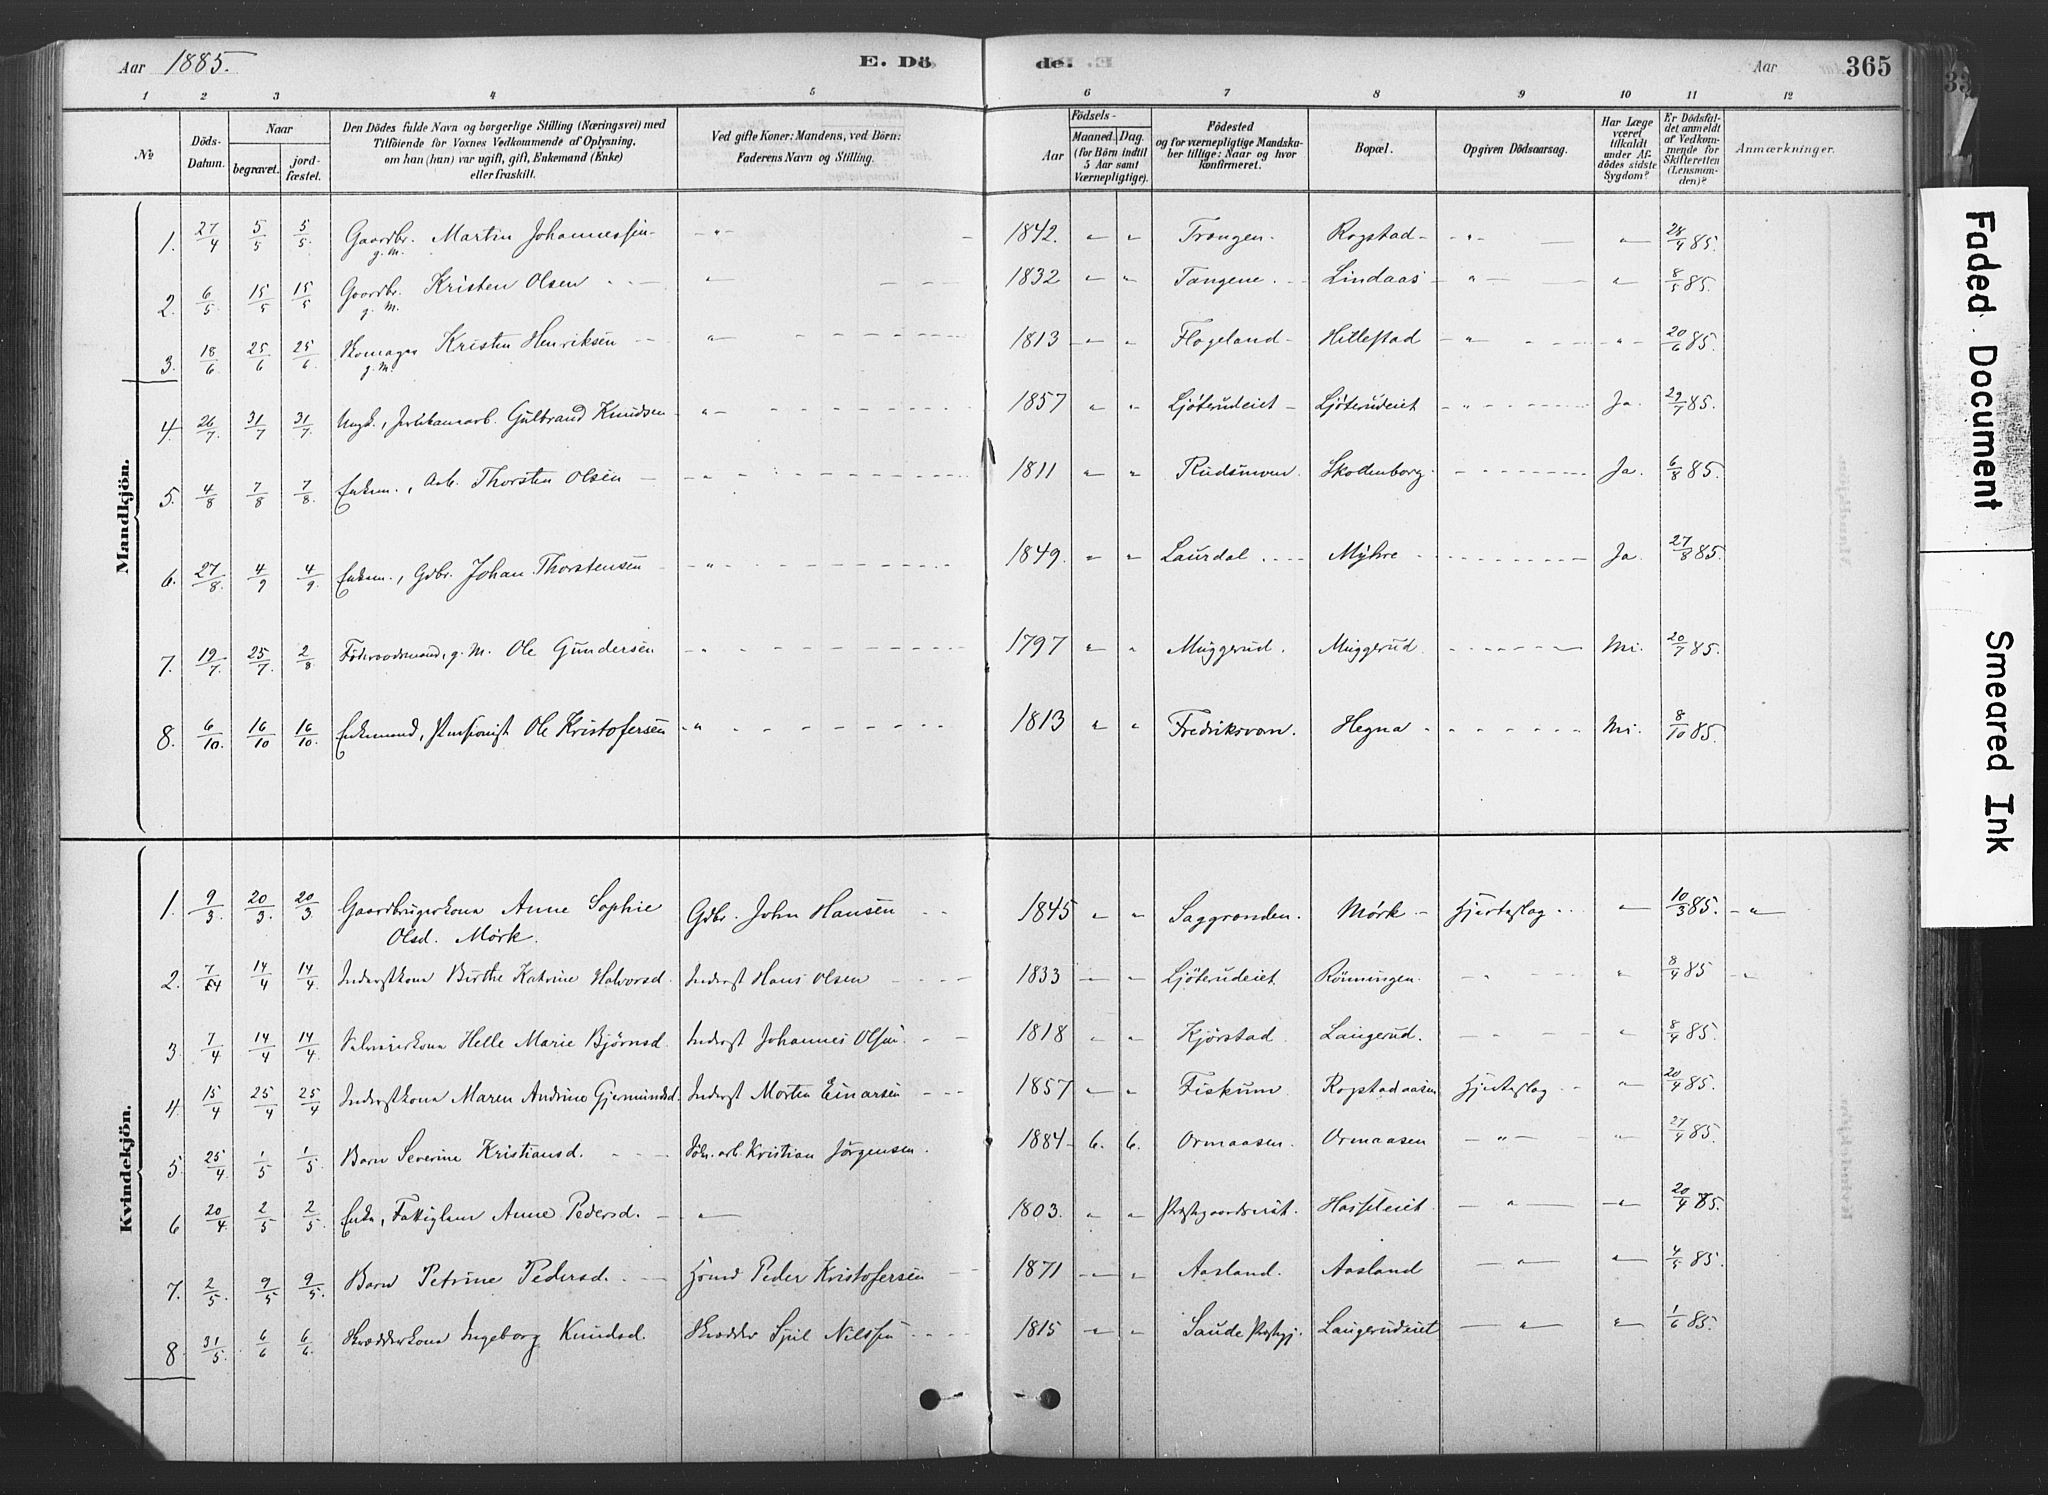 Aar 1885. E. Dö
de. Aar 365
1 2 3 4 5 6 7 8 9 10 11 12
№ Döds-Datum. Naar begravet. jord-fæstet. Den Dödes fulde Navn og borgerlige Stilling (Næringsvei) med Tilföiende for Voxnes Vedkommende af Oplysning, om han (hun) var ugift, gift, Enkemand (Enke) eller fraskilt. Ved gifte Koner: Mandens, ved Börn: Faderens Navn og Stilling. Födsels- Aar Maaned. Dag. (for Börn indtil 5 Aar samt Værnepligtige). Födested og for værnepligtige Mandskaber tillige: Naar og hvor konfirmeret. Bopæl. Opgiven Dödsaarsag. Har Læge været tilkaldt under Afdödes sidste Sygdom? Er Dödsfaldet anmeldt af Vedkommende for Skifteretten (Lensmanden)? Anmærkninger.
Mandkjön.
1. 27/4 5/5 5/5 Gaardbr. Martin Johannessen - " - 1842. " " Trangen - Rogstad - " - " 28/4 85.
g. M.
2. 6/5 15/5 15/5 Gaardbr. Kristen Olsen " 1832 " " Tangene. Lindaas - " - " 8/5 85.
g. M.
3. 18/6 25/6 25/6 Skomager Kristen Henriksen " 1813 " " Flogeland - Hillestad - " - " 20/6 85.
g. M.
4. 26/7. 31/7 31/7. Ungk., Gulbrand Knudsen - " - 1857 " " Ljøterudeiet - Ljøterudeiet - " - Ja. 29/7 85.
5. 4/8 7/8 7/8. Enkem., Arb. Thorsten Olsen - " - 1811 " " Rudsmoen Skollenborg. Ja. 6/8 85.
6. 27/8. 4/9 4/9. Enkem., Gdbr. Johan Thorstensen - " - 1849. " " Laurdal Myhre Ja. 27/8 85.
7. 19/7. 25/7. 2/8 Föderaadsmand, g. M. Ole Gundersen - " - 1797 " " Muggerud. Muggerud. Nei. 20/7 85.
8. 6/10. 16/10 16/10. Enkemand, Pensionist Ole Kristofersen - " - 1813 " " Fredriksværn. Hegna Nei. 8/10 85.
Kvindekjön.
1. 9/3. 20/3. 20/3 Gaardbrugerkona Anne Sophie Gdbr. John Hansen 1845 " " Saggrenden. Mørk - Hjerteslag " 10/3 85. - " -
Olsd. Mørk.
2. 7/4 14/4 14/4. Inderstkona Birthe Katrine Halvorsd. Inderst Hans Olsen 1833 " " Ljøterudeiet Rönningen. " " 8/4 85 - "
3. 7/4 14/4 14/4. Helle Marie Bjørnsd. Inderst Johannes Olsen. 1818 " " Kjørstad. Langerud. " 8/4 85.
4. 15/4 25/4 25/4 Inderstkona Maren Andrine Gjermundsd. Inderst Morten Einarsen 1857 " " Fiskum Rogstadaasen Hjerteslag " 20/4 85.
5. 25/4. 1/5 1/5. Barn Severine Kristiansd. Kristian Jørgensen. 1884 - 6. 6. Ormaasen. Ormaasen - " - " 27/4 85.
6 20/4 2/5 2/5. Enke, Fattiglem Anne Pedersd. " 1803. " " Hasseleiet. " " 20/4 85.
7. 2/5. 9/5 9/5. Barn Petrine Pedersd. Peder Kristofersen 1871 " " Aasland. Aasland " " 4/5 85.
8. 31/5. 6/6 6/6. Skrædderkona Ingeborg Knudsd. Skrædder Nilssen 1815 " " Saude Præstegj. Langerudeiet " " 1/6 85.
Faded Document
Smeared Ink